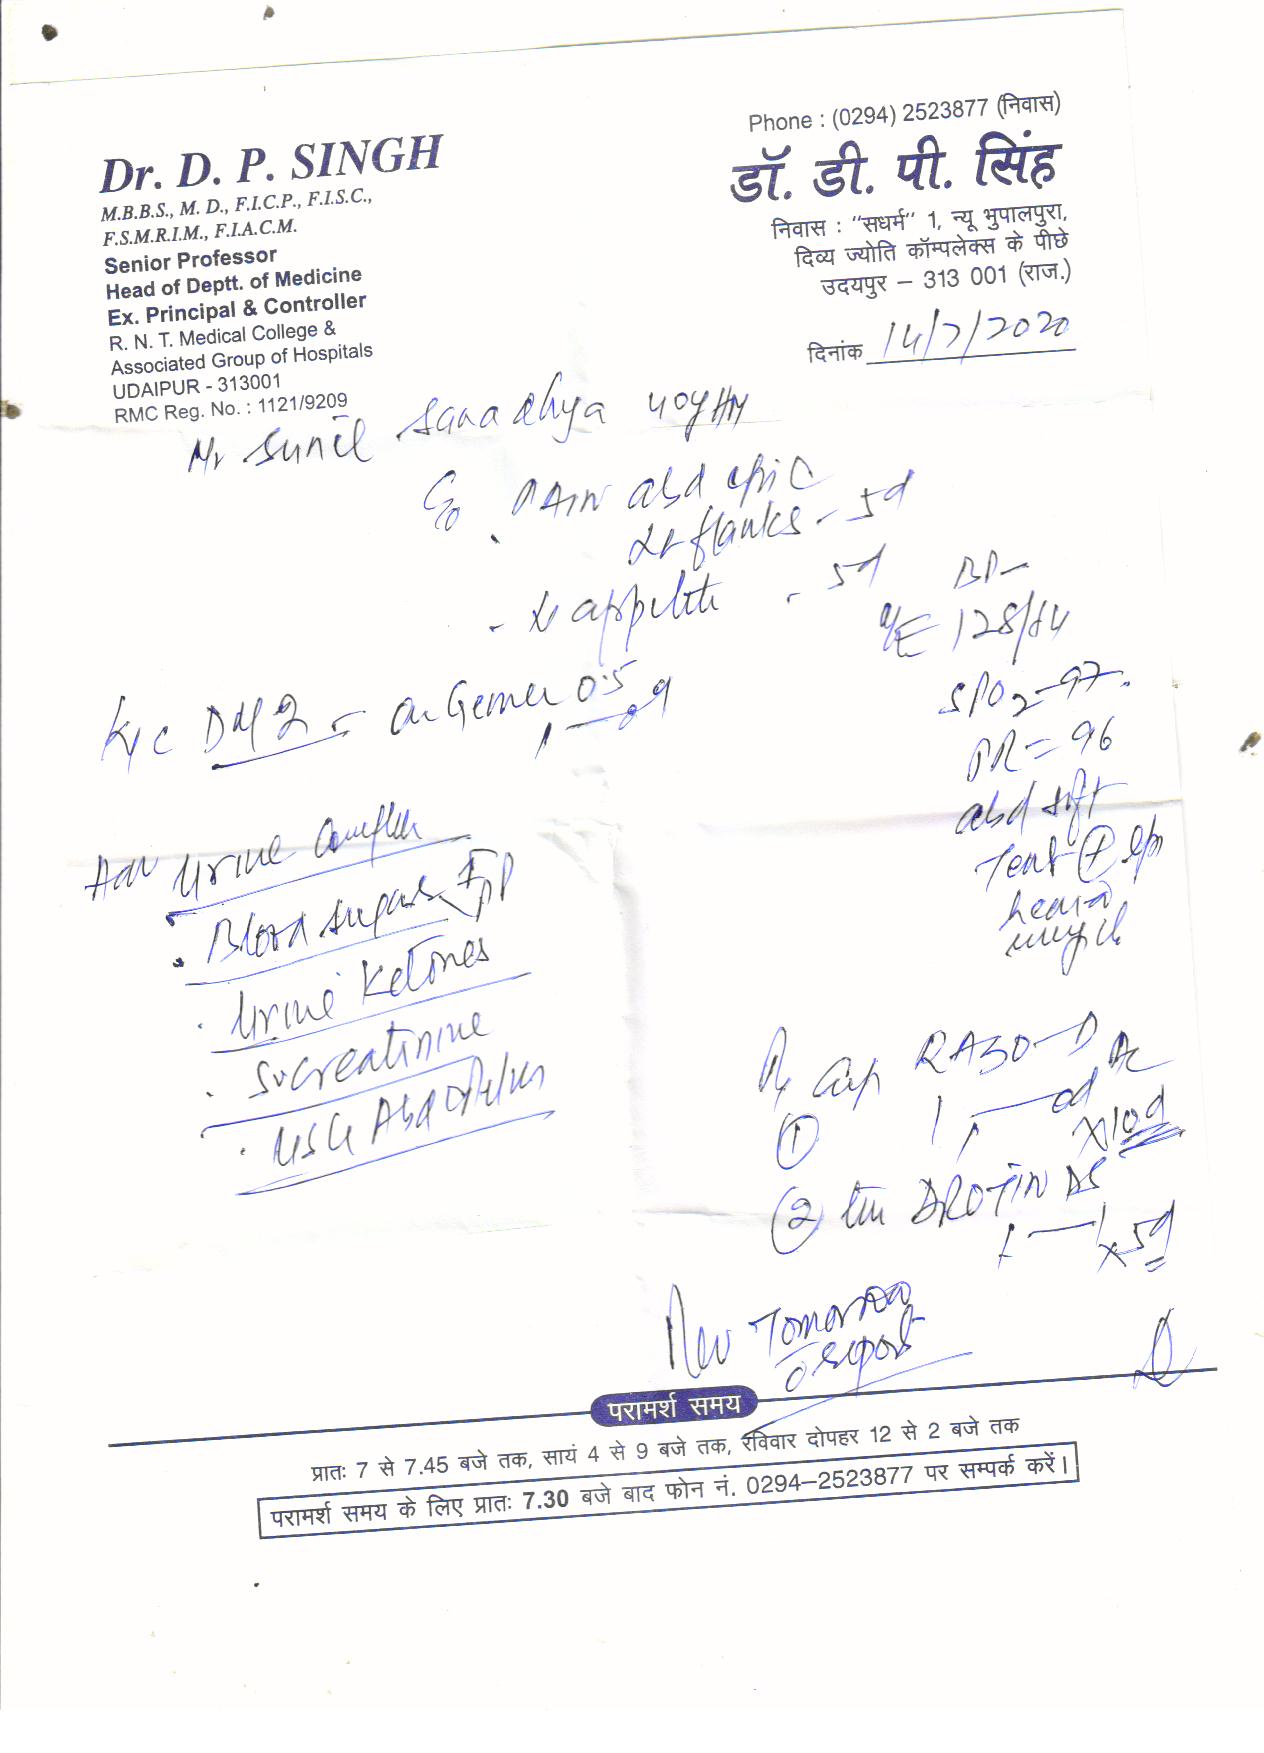 Phone : (0294) 2523877 (निवास)
Dr. D. P. SINGH
M.B.B.S., M. D., F.I.C.P., F.I.S.C.,
F.S.M.R.I.M., F.I.A.C.M.
Senior Professor
Head of Deptt. of Medicine
Ex. Principal & Controller
R. N. T. Medical College &
Associated Group of Hospitals
UDAIPUR - 313001
RMC Reg. No. : 1121/9209
डॉ. डी. पी. सिंह
निवास : "सधर्म" 1, न्यू भुपालपुरा,
दिव्य ज्योति कॉम्पलेक्स के पीछे
उदयपुर – 313 001 (राज.)
दिनांक 14/7/2020
Mr Sunil Sanadhya 40y
C/o . PAIN abd epic
flanks - 5d
- appetite - 5d
BP-
O/E 128/84
SPO2-97.
PR = 96
abd soft
Tent (+) epi
K/c DM 2 - on Gemer 0.5
Adv Urine Complete
. Blood sugar F PP
. Urine Ketones
. S.creatinine
. USG Abd
Rx Cap RAZO-D AC
(1) 1 od x10d
(2) DROTIN DS
1 — 1 x5d
Rev Tomorrow
c report
परामर्श समय
प्रातः 7 से 7.45 बजे तक, सायं 4 से 9 बजे तक, रविवार दोपहर 12 से 2 बजे तक
परामर्श समय के लिए प्रातः 7.30 बजे बाद फोन नं. 0294–2523877 पर सम्पर्क करें।